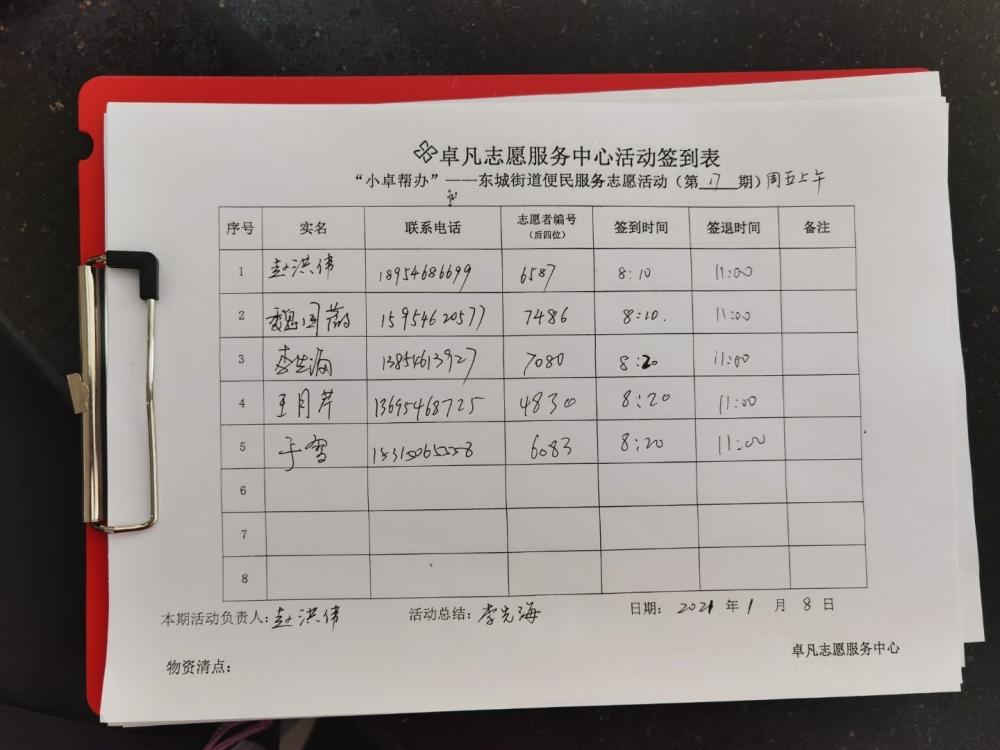 卓凡志愿服务中心活动签到表
“小卓帮办”——东城街道便民服务志愿活动（第 17 期）周五上午
序号 实名 联系电话 志愿者编号（后四位） 签到时间 签退时间 备注
1 赵洪伟 18954686699 6587 8:10 11:00
2 魏国 15954620577 7486 8:10. 11:00
3 李先海 13854613927 7080 8:20 11:00
4 王月芹 13695468725 4830 8:20 11:00
5 于雪 6083 8:20 11:00
6
7
8
本期活动负责人：赵洪伟 活动总结：李先海 日期： 2021 年 1 月 8 日
卓凡志愿服务中心
物资清点：